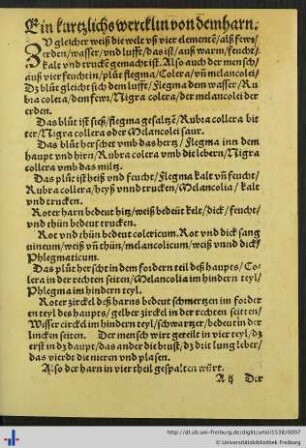 Ein kurtzlichs wercklin von dem harn.
ZU gleicher weiß die welt vß vier element/alß fewr/
erden/wasser/vnd lufft/das ist/auß warm/feucht/
kalt vnd truckē gemacht ist. Also auch der mensch/
auß vier feuchtin/plůt flegma/Colera/vn̄ melancolei/
Dz blůt gleicht sich dem lufft/flegma dem wasser/Ru
bra colera/dem fewr/Nigra colera/der melancolei der
erden.
Das blůt ist sieß/flegma gesaltzē/Rubra collera bit
ter/Nigra collera oder Melancolei saur.
Das blůt herschet vmb das hertz/flegma inn dem
haupt vnd hirn/Rubra colera vmb die lebern/Nigra
collera vmb das miltz.
Das plůt ist heiß vnd feucht/flegma kalt vn̄ feucht/
Rubra collera/heyß vnnd trucken/Melancolia/kalt
vnd trucken.
Roter harn bedeut hitz/weiß bedeüt kelt/dick/feucht/
vnd thün bedeut trucken.
Rot vnd thün bedeut colericum. Rot vnd dick sang
uineum/weiß vn̄ thün/melancolicum/weiß vnnd dick/
Phlegmaticum.
Das plůt herscht in dem fordern teil deß haupts/Co-
lera in der rechten seiten/Melancolia im hindern teyl/
Phlegma im hindern teyl.
Roter zirckel deß harns bedeut schmertzen im forder
en teyl des haupts/gelber zirckel in der rechten seitten/
Wisser circkel im hindern teyl/schwartzer/bedeut in der
lincken seiten. Der mensch wirt geteilt in vier teyl/dz
erst in dz haupt/das ander die brust/dz drit lung leber/
das vierdt die nieren vnd plasen.
Also der harn in vier theil gespalten würt.
A ij Der
http://dl.ub.uni-freiburg.de/diglit/artel1538/0007